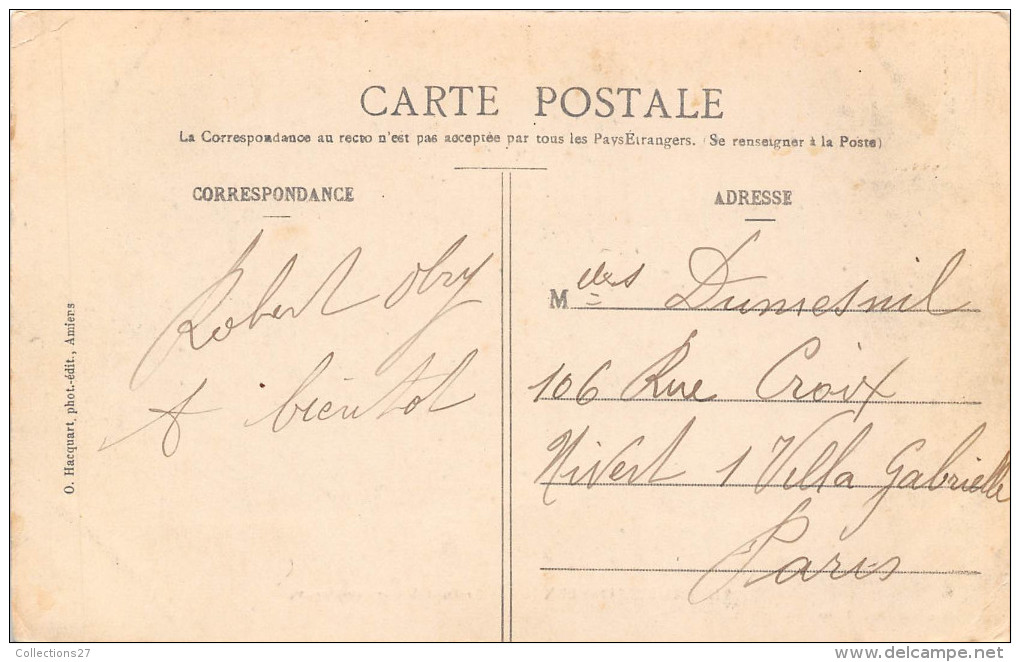 CARTE POSTALE
La Correspondance au recto n'est pas acceptée par tous les PaysÉtrangers. (Se renseigner à la Poste)
CORRESPONDANCE
ADRESSE
Robert Obry
A bientot
M des Dumesnil
106 Rue Croix
Nivert 1 Villa Gabrielle
Paris
O. Hacquart, phot.-édit., Amiens
Collections27
www.delcampe.net